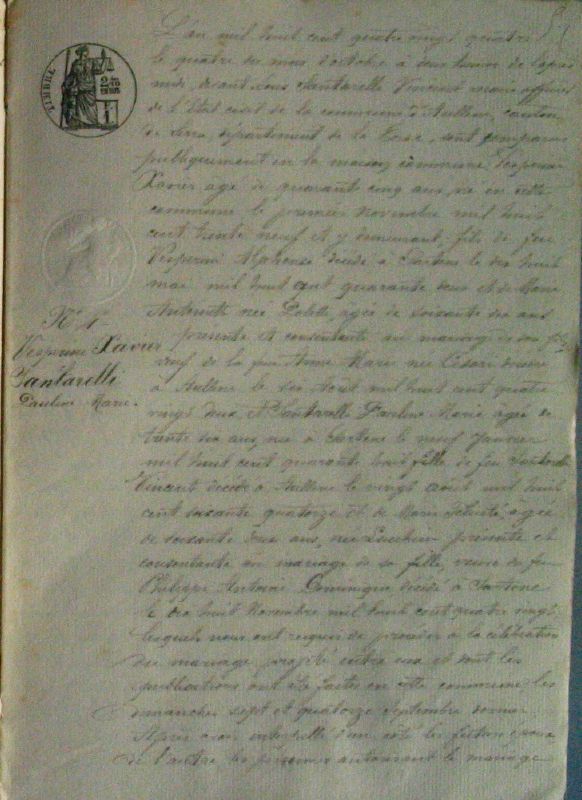 TIMBRE
L'an mil huit cent quatre vingt quatre
le quatre du mois d'octobre à deux heures de l'après
midi, devant Nous Santarelli Vincent maire officier
de l'Etat civil de la commune d'Aullène, canton
de Serra, département de la Corse, sont comparus
publiquement en la maison commune Vesperini
Xavier agé de quarante cinq ans, né en cette
commune le premier Novembre mil huit
cent trente neuf et y demeurant, fils de feu
Vesperini Alphonse décédé à Sartene le dix huit
mai mil huit cent quarante deux et de Marie
Antoinette née agée de soixante dix ans
N° 4
présente et consentante au mariage de son fils
Vesperini Xavier
veuf de la feue Anne Marie née Cesari décédée
Santarelli
à Aullène le six Aout mil huit cent quatre
Pauline Marie.
vingt deux et Santarelli Pauline Marie agée de
trente six ans, née à Sartene le neuf Janvier
mil huit cent quarante huit fille de feu Santarelli
Vincent décédé à Aullène le vingt aout mil huit
cent soixante quatorze et de Marie agée
de soixante deux ans, née Lucchini présente et
consentante au mariage de sa fille, veuve de feu
Philippe Antoine Dominique décédé à Sartene
le dix huit Novembre mil huit cent quatre vingt
lesquels nous ont requis de procéder à la célébration
du mariage projeté entre eux et dont les
publications ont été faites en cette commune les
dimanches sept et quatorze Septembre dernier
Après avoir interpellé d'un coté les futurs époux
de l'autre les personnes autorisant le mariage